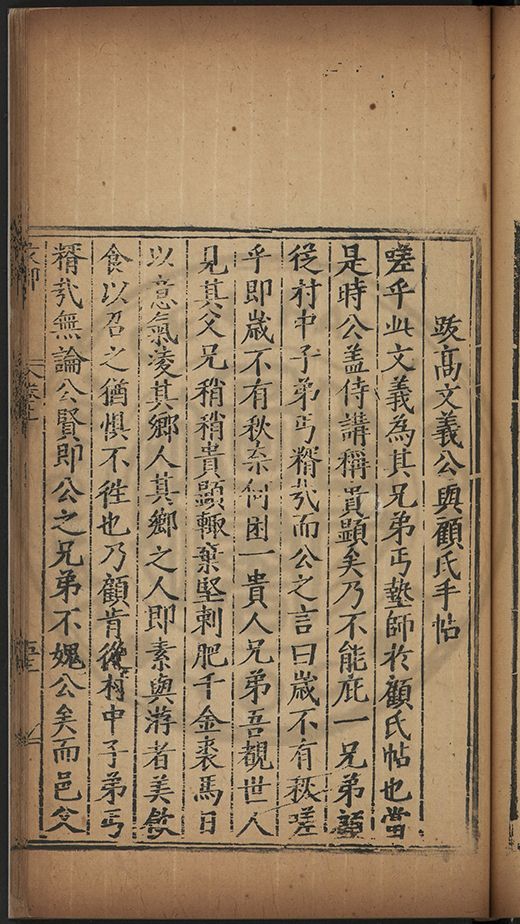 跋高文義公與顧氏手帖
嗟乎此文義為其兄弟丐塾師於顧氏帖也當
是時公盖侍講稱貴顕矣乃不能庇一兄弟顧
從村中子弟丐糈㢤而公之言曰歲不有秋嗟
乎即歲不有秋柰何困一貴人兄弟吾覩世人
見其父兄稍稍貴顕輙策堅刺肥千金裘馬日
以意氣凌其鄉人其鄉之人即素與游者美飲
食以召之猶惧不徃也乃顧肯從村中子弟丐
糈㢤無論公賢即公之兄弟不媿公矣而邑父